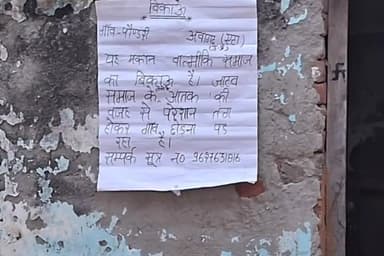 बिकाऊ
गाँव-पौण्डरी अवागढ़ (एटा)
यह मकान वाल्मीकि समाज
का बिकाऊ है। जाटव
समाज के आतंक की
वजह से परेशान तंग
होकर गाँव छोड़ना पड़
रहा है।
सम्पर्क सूत्र no 9697631816